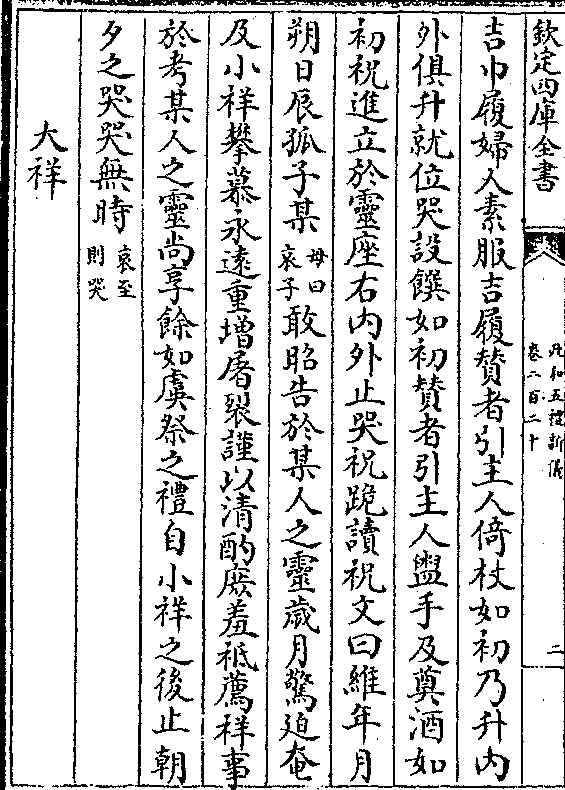 欽定四庫全書
政和五禮新儀
卷二百二十
二
吉巾履婦人素服吉履贊者引主人倚杖如初乃升内
外俱升就位哭設饌如初贊者引主人盥手及奠酒如
初祝進立於靈座右内外止哭祝跪讀祝文曰維年月
朔日辰孤子某母曰哀子敢昭告於某人之靈歲月驚迫奄
及小祥攀慕永遠重增屠裂謹以清酌庶羞祗薦祥事
於考某人之靈尚享餘如虞祭之禮自小祥之後止朝
夕之哭哭無時哀至則哭
大祥